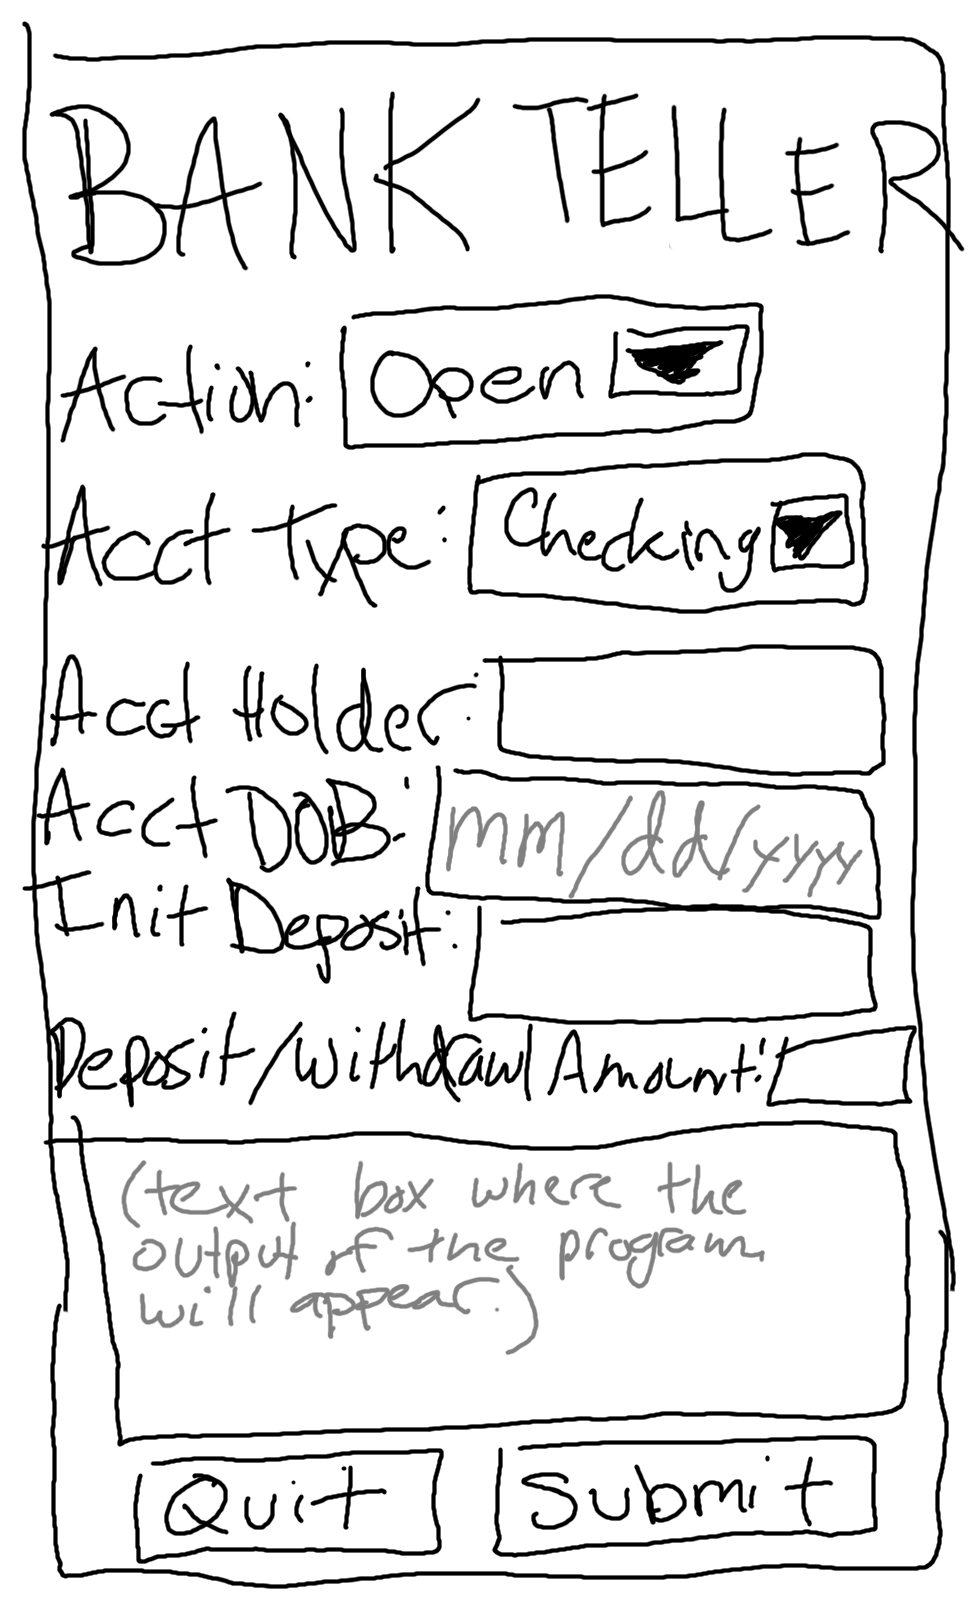 BANK TELLER
Action: Open
Acct Type: Checking
Acct Holder:
Acct DOB: mm/dd/yyyy
Init Deposit:
Deposit/Withdrawl Amount:
(text box where the
output of the program
will appear.)
Quit Submit